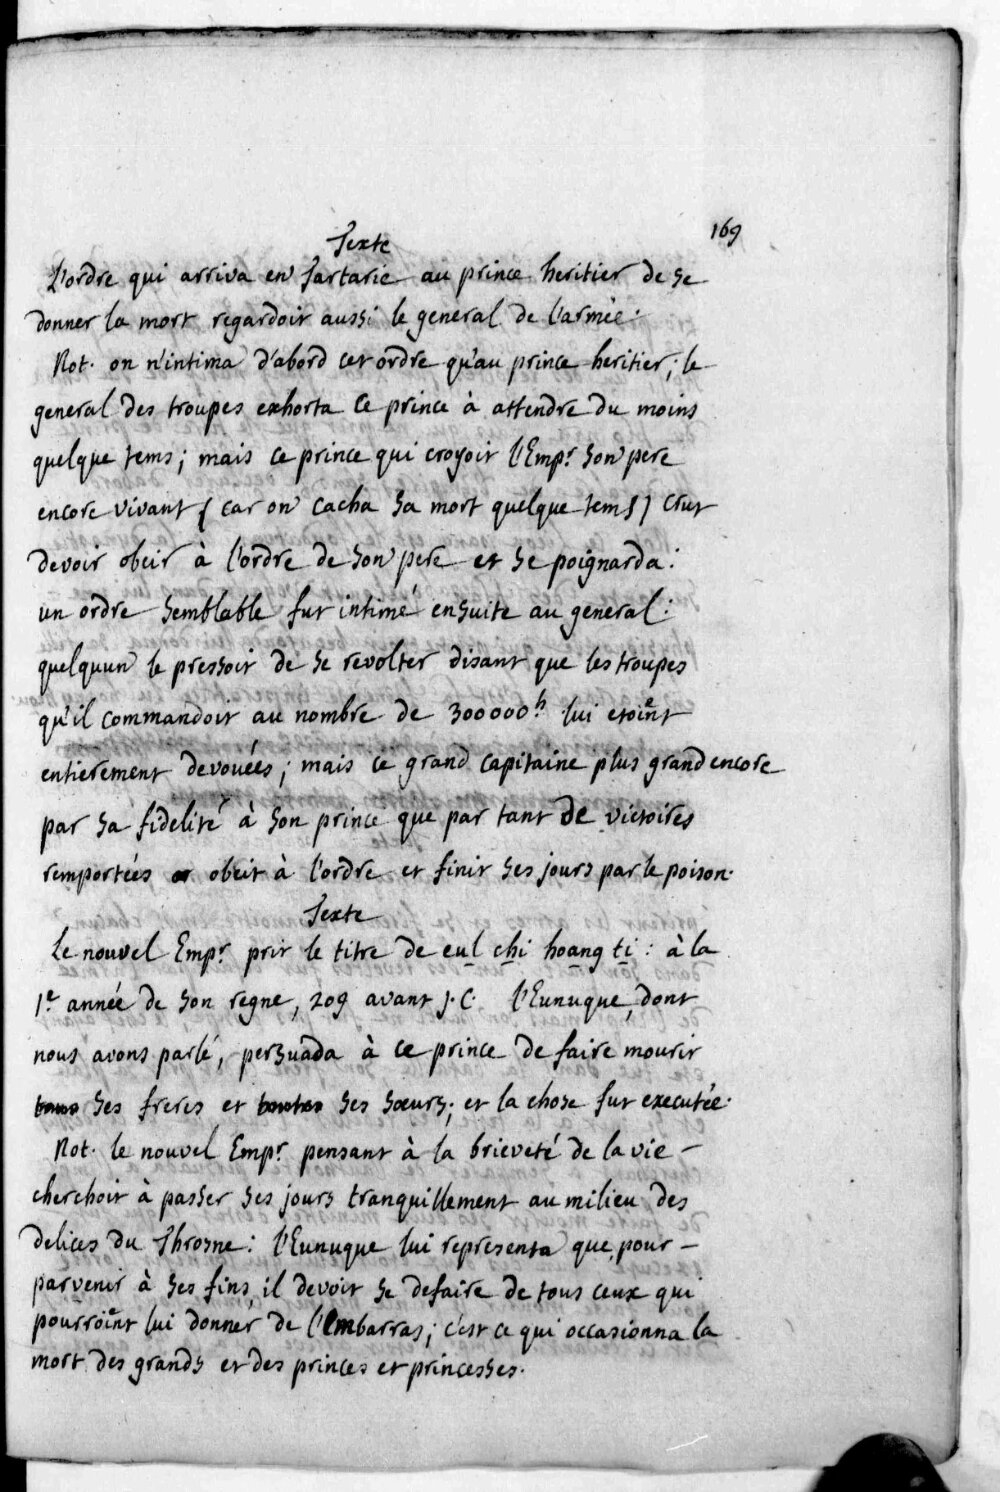 169
Texte
L'ordre qui arriva en Tartarie au prince heritier de se
donner la mort regardoit aussi le general de l'armée.
Not. on n'intima d'abord cet ordre qu'au prince heritier; le
general des troupes exhorta ce prince à attendre du moins
quelque tems; mais ce prince qui croyoit l'Empr. son pere
encore vivant ( car on cacha sa mort quelque tems ) crut
devoir obeir à l'ordre de son pere et se poignarda.
un ordre semblable fut intimé ensuite au general:
quelquun le pressoit de se revolter disant que les troupes
qu'il commandoit au nombre de 300000h. lui etoient
entierement devouées; mais ce grand capitaine plus grand encore
par sa fidelité à son prince que par tant de victoires
remportées obeit à l'ordre et finit ses jours par le poison.
Texte
Le nouvel Empr. prit le titre de eul chi hoang ti: à la
1e. année de son regne, 209 avant J.C. l'Eunuque, dont
nous avons parlé, persuada à ce prince de faire mourir
tous ses freres et toutes ses sœurs; et la chose fut executée.
Not. le nouvel Empr. pensant à la brieveté de la vie –
cherchoit à passer ses jours tranquillement au milieu des
delices du Throsne: l'Eunuque lui representa que, pour –
parvenir à ses fins, il devoit se defaire de tous ceux qui
pourroient lui donner de l'Embarras; c'est ce qui occasionna la
mort des grands et des princes et princesses.